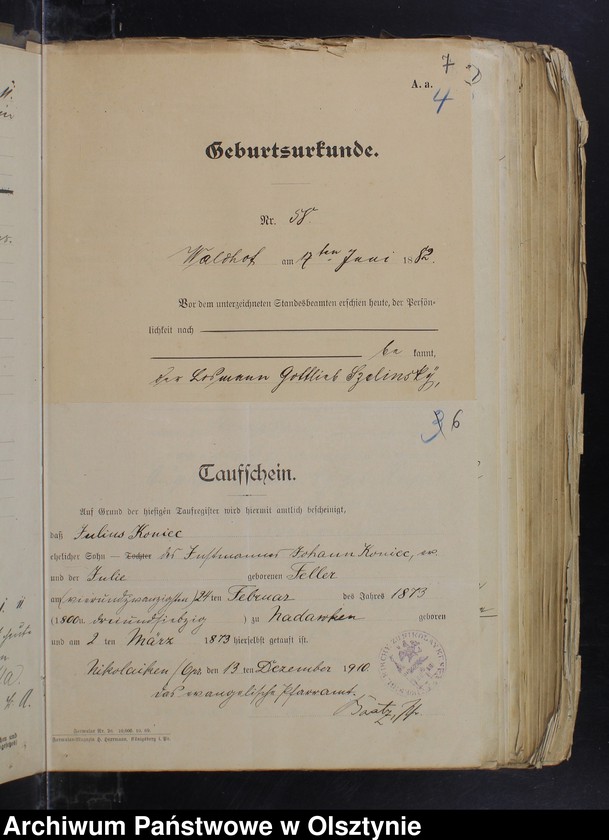 7
A. a.
4
Geburtsurkunde.
Nr. 58.
Waldhof am 7ten Juni 1882.
Vor dem unterzeichneten Standesbeamten erschien heute, der Persön-
lichkeit nach
be kannt,
der Losmann Gottlieb Szelinsky,
3 6
Taufschein.
Auf Grund der hiesigen Taufregister wird hiermit amtlich bescheinigt,
daß Julius Koniec
ehelicher Sohn – Tochter des Instmannes Johann Koniec, ev.
und der Julie geborenen Feller
am (vierundzwanzigsten) 24 ten Februar des Jahres 1873
(1800 dreiundsiebzig) zu Nadawken geboren
und am 2 ten März 1873 hierselbst getauft ist.
Nikolaiken /Opr. den 13 ten Dezember 1910.
das evangelische Pfarramt.
Formular Nr.
Königsberg i. Pr.
Archiwum Państwowe w Olsztynie